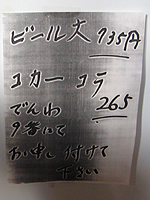 ビール大 735円
コカーコラ 265
でんわ
9番いて
お申し付けて
下さい